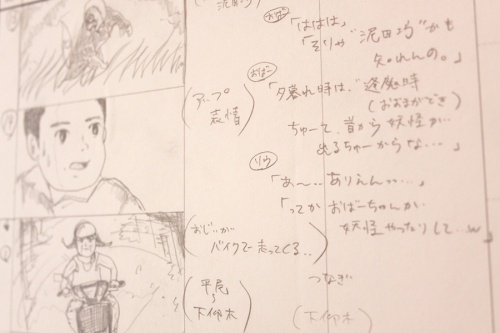 (泥田坊)
おば
「ははは」
「そりゃ"泥田坊"かも
知れんの。」
(アップ
表情)
おばー
「夕暮れ時は、逢魔時
(おおまがどき)
ちゅーて、昔から妖怪が…
出るちゅーからな…」
リウ
「あ〜‥ありえん‥‥」
「ってか おばーちゃんが
妖怪やったりして…w
(おじいが
バイクで走ってくる‥)
つなぎ
(平尾
〜
下仰木)
(下仰木)